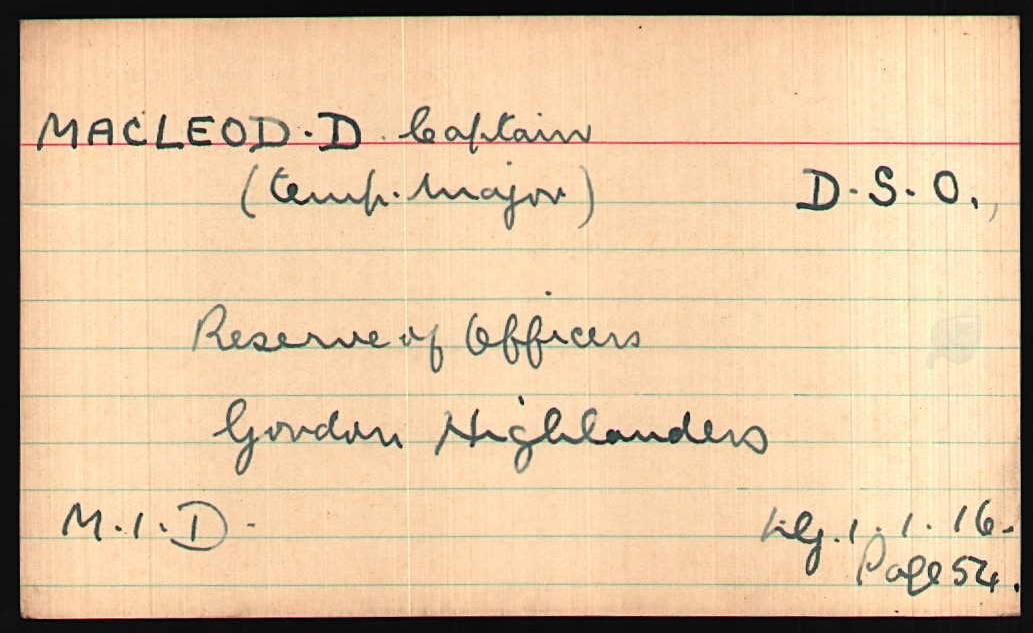 MACLEOD. D. Captain
(temp. Major) D. S. O.,
Reserve of Officers
Gordon Highlanders
M. I. D. L.G. 1. 1. 16.
Page 54.